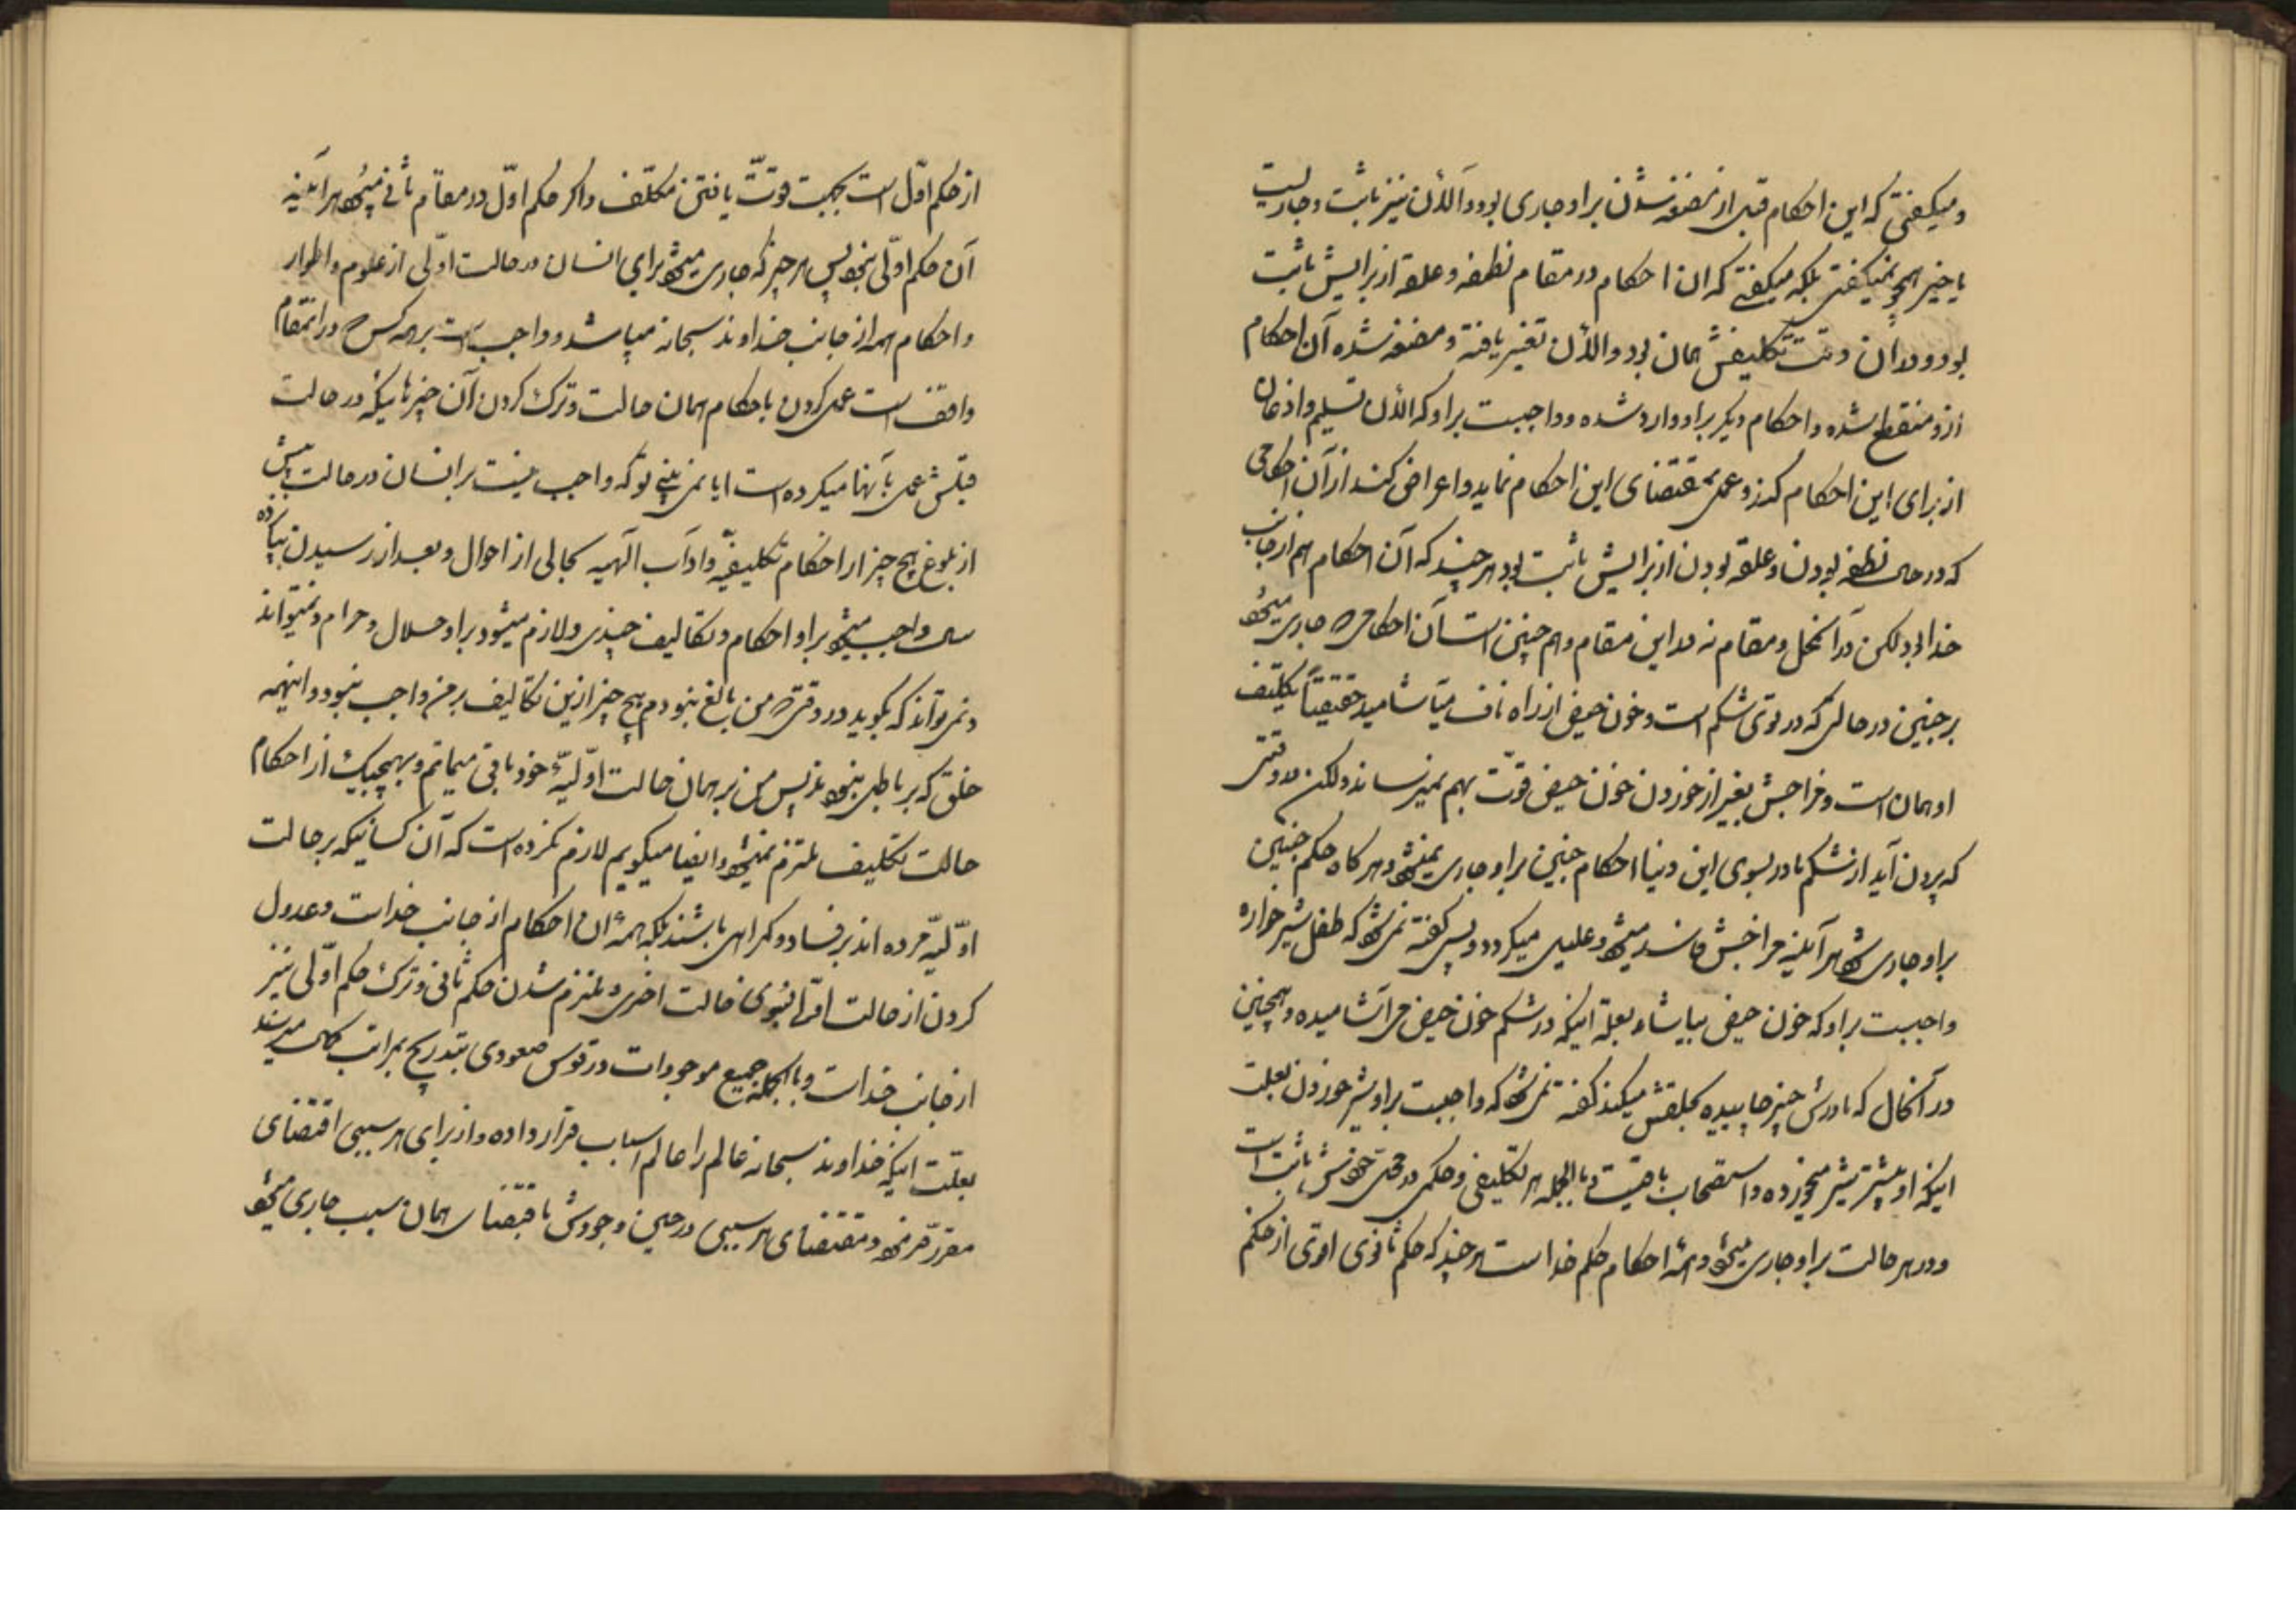 و میکفتی که این احکام قبل از مضغه شدن بر او جاری بود و الآن نیز ثابت و جاریست
یا خیر همچو نمیکفتی بلکه میکفتی که ان احکام در مقام نطفه و علقه از برایش ثابت
بود و در ان وقت تکلیفش همان بود و الآن تغییر یافته و مضغه شده آن احکام
ازو منقطع شده و احکام دیکر بر او وارد شده و واجبست بر او که الآن تسلیم و اذعان
از برای این احکام کند و عمل بمقتضای این احکام نماید و اعراض کند از آن احکامی
که در حال نطفه بودن و علقه بودن از برایش ثابت بود هر چند که آن احکام هم از جانب
خدا بود لکن در آنمحل و مقام نه در این مقام و هم چنین است آن احکامی که جاری میشود
بر جنین در حالی که در توی شکم است و خون حیض از راه ناف میآشامید حقیقتاً تکلیف
او همان است و مزاجش بغیر از خوردن خون حیض قوّت بهم نمیرساند و لکن در وقتی
که بیرون آید از شکم مادر بسوی این دنیا احکام جنین بر او جاری نمیشود و هر کاه حکم جنین
بر او جاری شود هر آینه مزاجش فاسد میشود و علیل میکردد و پس کفته نمیشود که طفل شیر خواره
واجبست بر او که خون حیض بیاشامد بعلة اینکه در شکم خون حیض می آشامیده و همچنین
در آنحال که مادرش چیز جاییده بحلقش میکند کفته نمیشود که واجبست بر او شیر خوردن بعلت
اینکه او پیشتر شیر میخورده و استصحاب باقیست و بالجمله هر تکلیفی و حکمی در محل خودش ثابت است
و در هر حالت بر او جاری میشود و همهٔ احکام حکم خداست هر چند که حکم ثانوی اقوی از حکم
از حکم اوّل است بجهت قوّت یافتن مکلّف و اکر حکم اوّل در مقام ثانی میبود هر آینه
آن حکم اوّلی نبود پس هر چیز که جاری میشود برای انسان در حالت اوّلی از علوم و اطوار
و احکام همه از جانب خداوند سبحانه میباشد و واجب است بر همه کس که در انمقام
واقف است عمل کردن باحکام همان حالت و ترک کردن آن چیزهائیکه در حالت
قبلش عمل بآنها میکرده است ایا نمی بینی تو که واجب نیست بر انسان در حالت پیش
از بلوغ هیچ چیز از احکام تکلیفیّه و اداب الهیه بحالی از احوال و بعد از رسیدن بپانزده
سال واجب میشود بر او احکام و تکالیف چندی و لازم میشود بر او حلال و حرام و نمیتواند
و نمی تواند که بکوید در وقتی که من بالغ نبودم هیچ چیز ازین تکالیف بر من واجب نبود و اینهمه
خلق که بر باطل نبودند پس من بر همان حالت اوّلیّهٔ خود باقی میمانم و بهیچیک از احکام
حالت تکلیف ملتزم نمیشود و ایضا میکویم لازم نکرده است که آن کسانیکه بر حالت
اوّلیّه مرده اند بر فساد و کمراهی باشند بلکه همهٔ ان احکام از جانب خداست و عدول
کردن از حالت اوّل بسوی حالت اخری و ملتزم شدن حکم ثانی و ترک حکم اوّلی نیز
از جانب خداست و بالجمله جمیع موجودات در قوس صعودی بتدریج بمراتب کمال میرسند
بعلّت اینکه خداوند سبحانه عالم را عالم اسباب قرار داده و از برای هر سببی اقتضای
مقرّر فرموده و مقتضای هر سببی در حین وجودش باقتضای همان سبب جاری میشود